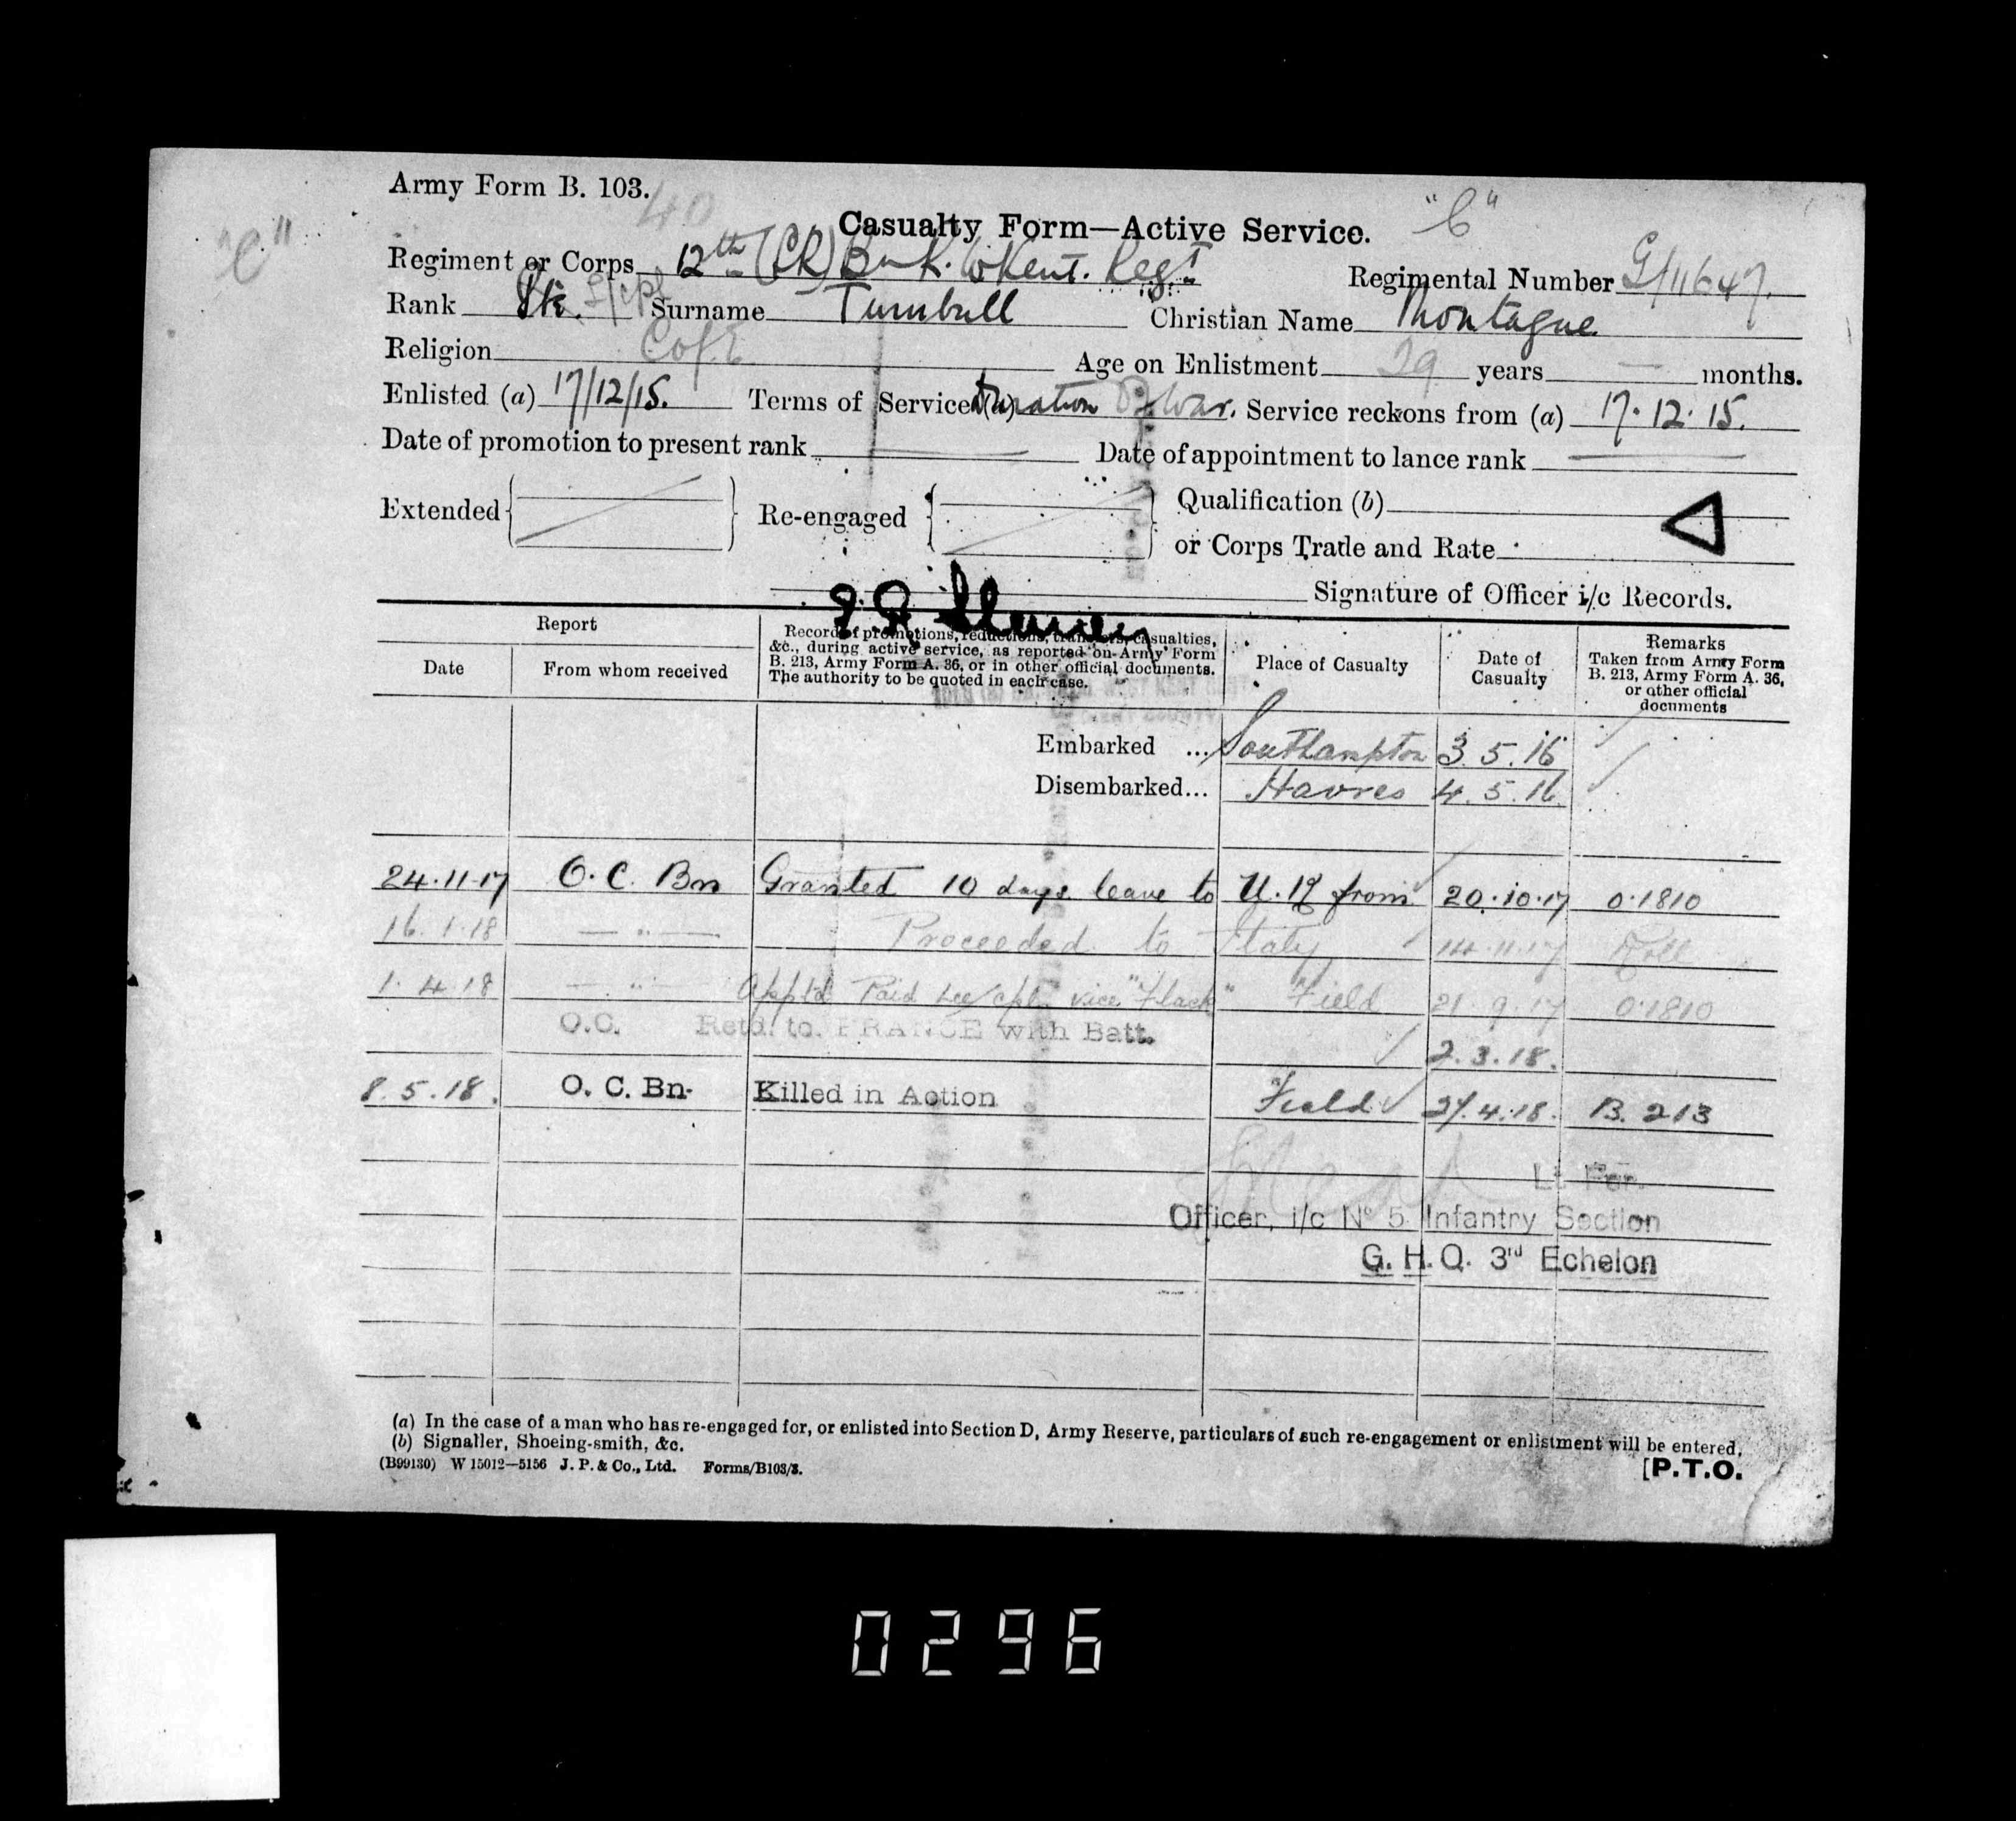 Army Form B. 103.
40
Casualty Form—Active Service.
"C"
"C"
Regiment or Corps 12th (S.R.) Bn R. W Kent. Regt Regimental Number G/11647.
Rank Pte. L/cpl Surname Turnbull Christian Name Montague
Religion C of E Age on Enlistment 29 years — months.
Enlisted (a) 17/12/15. Terms of Service (a) Duration of War. Service reckons from (a) 17.12.15.
Date of promotion to present rank Date of appointment to lance rank
Extended Re-engaged Qualification (b)
or Corps Trade and Rate
Signature of Officer i/c Records.
Report
Date From whom received
Record of promotions, reductions, transfers, casualties, &c., during active service, as reported on Army Form B. 213, Army Form A. 36, or in other official documents. The authority to be quoted in each case.
Place of Casualty
Date of Casualty
Remarks
Taken from Army Form B. 213, Army Form A. 36, or other official documents
Embarked ... Southampton 3.5.16
Disembarked... Havres 4.5.16
24.11.17 O.C. Bn Granted 10 days leave to U.K from 20.10.17 0.1810
16.1.18 — " — Proceeded to Italy 14.11.17 Roll
1.4.18 — " — App'td Paid Lce/cpl. vice "Flack" Field 21.9.17 0.1810
O.C. Retd. to. FRANCE with Batt. 2.3.18.
8.5.18. O. C. Bn. Killed in Action Field 27.4.18. B. 213
Lt. For.
Officer, i/c No 5 Infantry Section
G. H. Q. 3rd Echelon
(a) In the case of a man who has re-engaged for, or enlisted into Section D, Army Reserve, particulars of such re-engagement or enlistment will be entered.
(b) Signaller, Shoeing-smith, &c.
(B99130) W 15012—5156 J. P. & Co., Ltd. Forms/B103/3.
[P.T.O.
0296